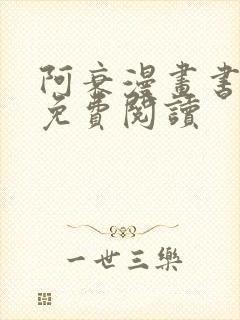 阿衰漫畫書
免費閱讀
一世三樂